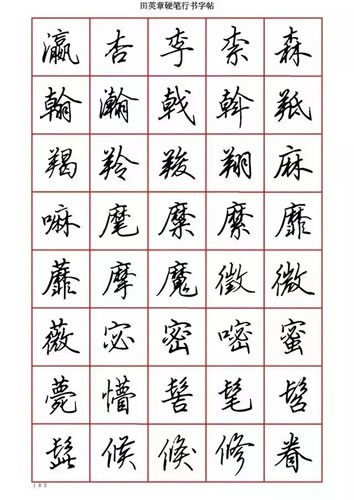 田英章硬笔行书字帖
瀛 杏 李 柰 森
翰 瀚 戟 斡 羝
羯 羚 羧 翔 麻
嘛 麾 糜 縻 靡
蘼 摩 魔 徵 微
薇 宓 密 嘧 蜜
薨 懵 髻 髦 髫
髭 候 倏 修 眷